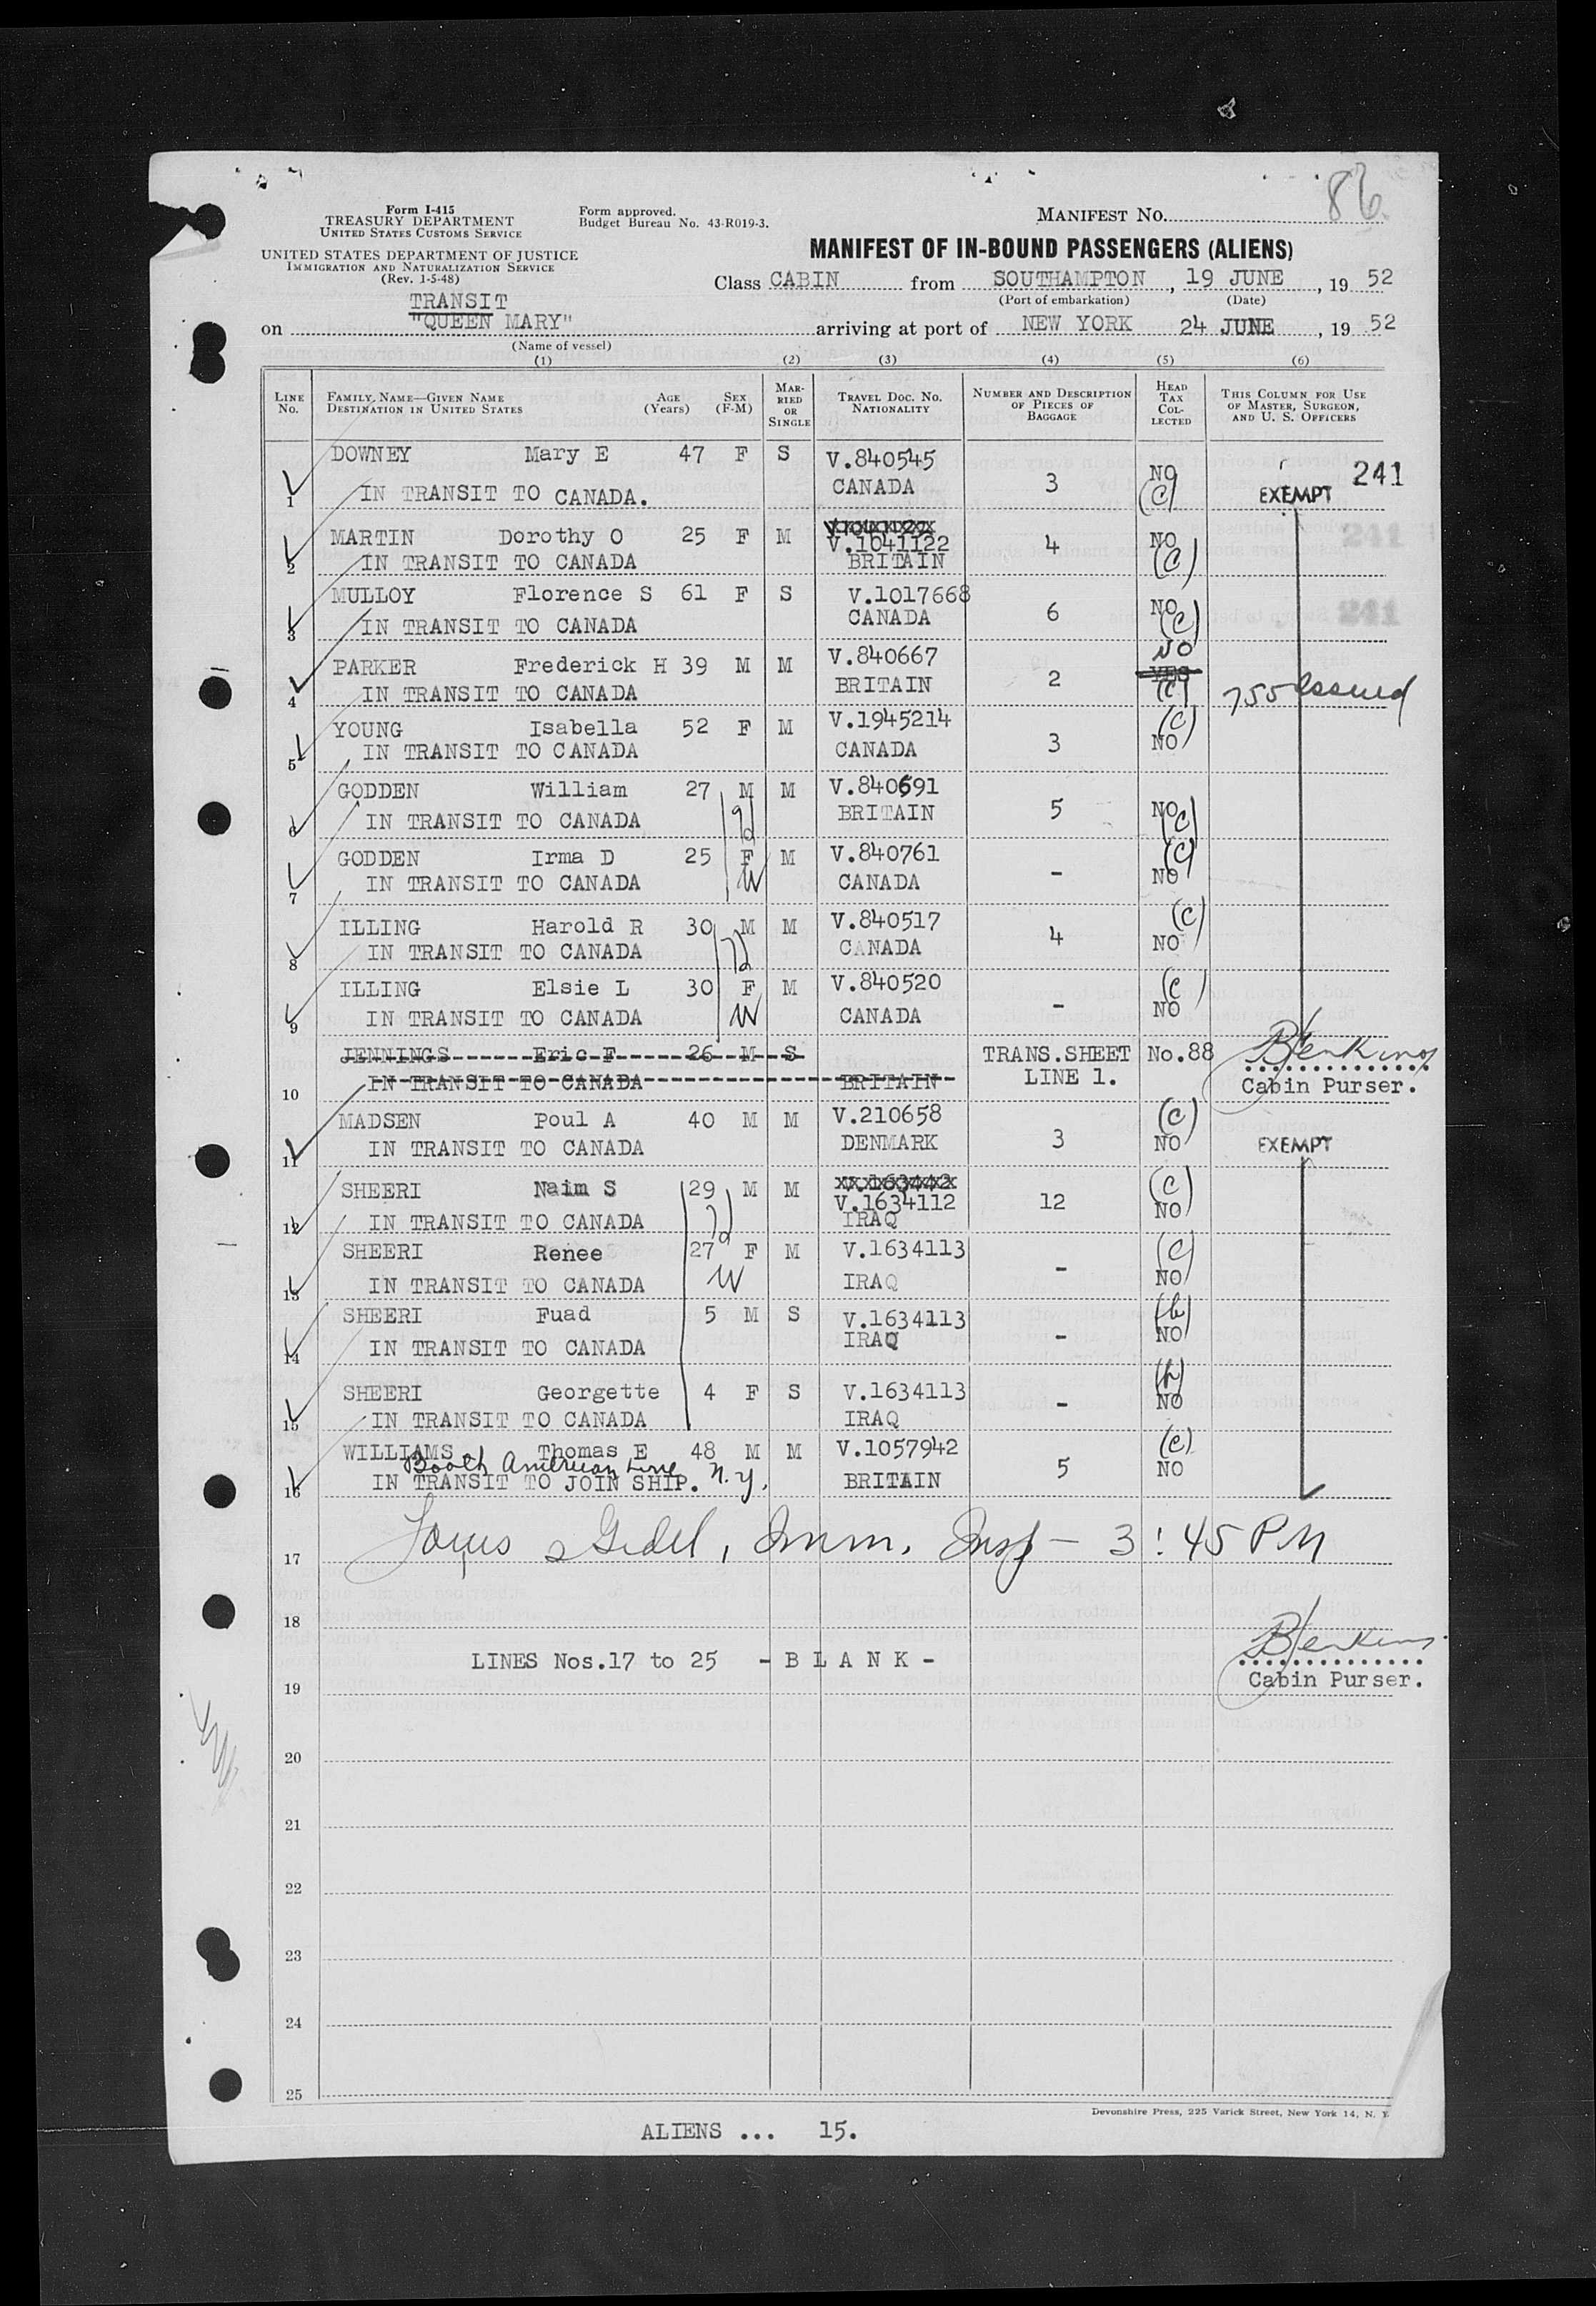 86
Form I-415
TREASURY DEPARTMENT
UNITED STATES CUSTOMS SERVICE
Form approved.
Budget Bureau No. 43-R019-3.
MANIFEST No.
UNITED STATES DEPARTMENT OF JUSTICE
IMMIGRATION AND NATURALIZATION SERVICE
(Rev. 1-5-48)
MANIFEST OF IN-BOUND PASSENGERS (ALIENS)
Class CABIN from SOUTHAMPTON, 19 JUNE, 19 52
(Port of embarkation) (Date)
TRANSIT
on "QUEEN MARY" arriving at port of NEW YORK 24 JUNE, 19 52
(Name of vessel)
(1) (2) (3) (4) (5) (6)
LINE No. FAMILY NAME—GIVEN NAME DESTINATION IN UNITED STATES AGE (Years) SEX (F-M) MARRIED OR SINGLE TRAVEL DOC. NO. NATIONALITY NUMBER AND DESCRIPTION OF PIECES OF BAGGAGE HEAD TAX COLLECTED THIS COLUMN FOR USE OF MASTER, SURGEON, AND U. S. OFFICERS
DOWNEY Mary E 47 F S V.840545 NO 241
1 IN TRANSIT TO CANADA. CANADA 3 (C) EXEMPT
MARTIN Dorothy O 25 F M V.1041122 4 NO
2 IN TRANSIT TO CANADA BRITAIN (C)
MULLOY Florence S 61 F S V.1017668 6 NO
3 IN TRANSIT TO CANADA CANADA (C)
PARKER Frederick H 39 M M V.840667 2 NO YES
4 IN TRANSIT TO CANADA BRITAIN (C) 755 issued
YOUNG Isabella 52 F M V.1945214 (C)
5 IN TRANSIT TO CANADA CANADA 3 NO
GODDEN William 27 M M V.840691 5 NO
6 IN TRANSIT TO CANADA BRITAIN (C)
GODDEN Irma D 25 F M V.840761 (C)
7 IN TRANSIT TO CANADA W CANADA - NO
ILLING Harold R 30 M M V.840517 4 (C)
8 IN TRANSIT TO CANADA CANADA NO
ILLING Elsie L 30 F M V.840520 (C)
9 IN TRANSIT TO CANADA W CANADA - NO
JENNINGS Eric F 26 M S TRANS.SHEET No.88
10 IN TRANSIT TO CANADA BRITAIN LINE 1. Cabin Purser.
MADSEN Poul A 40 M M V.210658 (C)
11 IN TRANSIT TO CANADA DENMARK 3 NO EXEMPT
SHEERI Naim S 29 M M V.163442 V.1634112 12 (C)
12 IN TRANSIT TO CANADA IRAQ NO
SHEERI Renee 27 F M V.1634113 (C)
13 IN TRANSIT TO CANADA W IRAQ - NO
SHEERI Fuad 5 M S V.1634113 (h)
14 IN TRANSIT TO CANADA IRAQ - NO
SHEERI Georgette 4 F S V.1634113 (h)
15 IN TRANSIT TO CANADA IRAQ - NO
WILLIAMS Thomas E 48 M M V.1057942 (C)
Booth American Line N.Y.
16 IN TRANSIT TO JOIN SHIP. BRITAIN 5 NO
17 Imm. Insp — 3:45 PM
18
LINES Nos.17 to 25 - B L A N K -
19 Cabin Purser.
20
21
22
23
24
25
Devonshire Press, 225 Varick Street, New York 14, N. Y.
ALIENS ... 15.